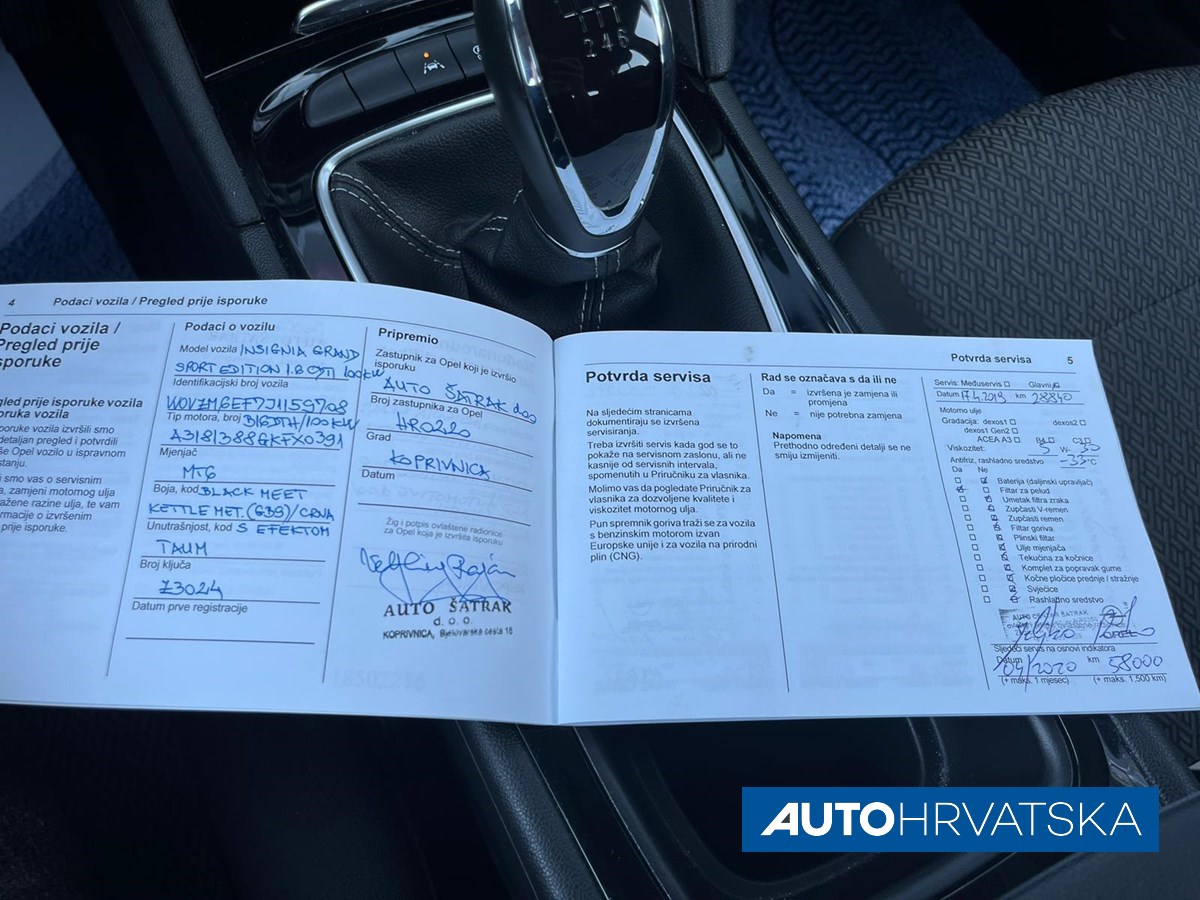 2 4 6
4 Podaci vozila / Pregled prije isporuke
Podaci vozila /
Pregled prije
isporuke
gled prije isporuke vozila
oruka vozila
oruke vozila izvršili smo
detaljan pregled i potvrdili
še Opel vozilo u ispravnom
stanju.
i smo vas o servisnim
, zamjeni motornog ulja
ažene razine ulja, te vam
ormacije o izvršenim
prije isporuke.
Podaci o vozilu
Model vozila INSIGNIA GRAND
SPORT EDITION 1.6 CDTI 100kW
Identifikacijski broj vozila
W0VZM6EF7J1159708
Tip motora, broj B16DTH/105KW
A318/388GKFX0391
Mjenjač
MT6
Boja, kod BLACK MEET
KETTLE MET.(G39)/CRNA
Unutrašnjost, kod S EFEKTOM
TAUM
Broj ključa
Z3024
Datum prve registracije
Pripremio
Zastupnik za Opel koji je izvršio
isporuku
AUTO ŠATRAK doo
Broj zastupnika za Opel
HR0220
Grad
KOPRIVNICA
Datum
Žig i potpis ovlaštene radionice
za Opel koja je izvršila isporuku
AUTO ŠATRAK
d.o.o.
KOPRIVNICA, Bjelovarska cesta 18
Potvrda servisa 5
Potvrda servisa
Na sljedećim stranicama
dokumentiraju se izvršena
servisiranja.
Treba izvršiti servis kada god se to
pokaže na servisnom zaslonu, ali ne
kasnije od servisnih intervala,
spomenutih u Priručniku za vlasnika.
Molimo vas da pogledate Priručnik za
vlasnika za dozvoljene kvalitete i
viskozitet motornog ulja.
Pun spremnik goriva traži se za vozila
s benzinskim motorom izvan
Europske unije i za vozila na prirodni
plin (CNG).
Rad se označava s da ili ne
Da = izvršena je zamjena ili
promjena
Ne = nije potrebna zamjena
Napomena
Prethodno određeni detalji se ne
smiju izmijeniti.
Servis: Međuservis Glavni
Datum 17.4.2019 km 28840
Motorno ulje
Gradacija: dexos1 dexos2
dexos1 Gen2
ACEA A3 B4 C3
Viskozitet: 5 W- 30
Antifriz, rashladno sredstvo -35°C
Da Ne
Baterija (daljinski upravljač)
Filtar za pelud
Umetak filtra zraka
Zupčasti V-remen
Zupčasti remen
Filtar goriva
Plinski filtar
Ulje mjenjača
Tekućina za kočnice
Komplet za popravak gume
Kočne pločice prednje / stražnje
Svjećice
Rashladno sredstvo
Sljedeći servis na osnovi indikatora
Datum km
04/2020 58000
(+ maks. 1 mjesec) (+ maks. 1,500 km)
AUTOHRVATSKA